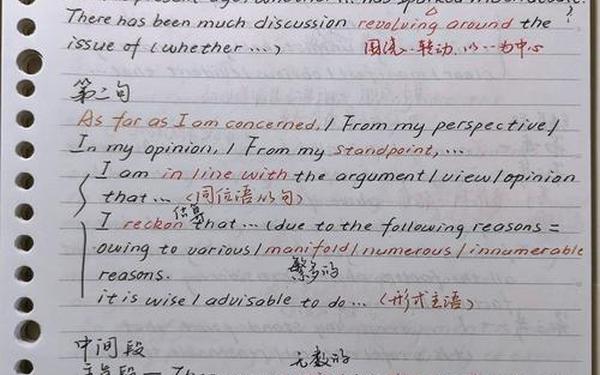 There has been much discussion revolving around the ?
issue of (whether …) 围绕…转动, 以…为中心
第二句
As far as I am concerned, / From my perspective /
In my opinion, / From my standpoint, …
I am in line with the argument / view / opinion
that … (同位语从句)
估算
I reckon that … (due to the following reasons =
owing to various / manifold / numerous / innumerable
reasons. 繁多的
it is wise / advisable to do … (形式主语)
中间段 无数的